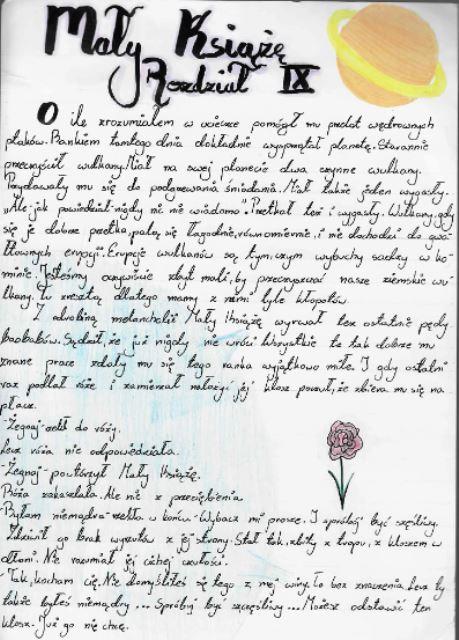 Mały Książę
Rozdział IX
O ile zrozumiałem w ucieczce pomógł mu przelot wędrownych
ptaków. Rankiem tamtego dnia dokładnie wysprzątał planetę. Starannie
przeczyścił wulkany. Miał na swej planecie dwa czynne wulkany.
Przydawały mu się do podgrzewania śniadania. Miał także jeden wygasły.
"Ale jak powiedział-nigdy nic nie wiadomo". Przetkał też i wygasły. Wulkany, gdy
się je dobrze przetka, palą się łagodnie, równomiernie, i nie dochodzi do gwa-
łtownych erupcji. Erupcje wulkanów są tym, czym wybuchy sadzy w ko-
minie. Jesteśmy oczywiście zbyt mali, by przeczyszczać nasze ziemskie wu-
lkany. To zresztą dlatego mamy z nimi tyle kłopotów.
Z odrobiną melancholii Mały Książę wyrwał też ostatnie pędy
baobabów. Sądził, że już nigdy nie wróci. Wszystkie te tak dobrze mu
znane prace zdały mu się tego ranka wyjątkowo miłe. I gdy ostatni
raz podlał różę i zamierzał nałożyć jej klosz poczuł, że zbiera mu się na
płacz.
-Żegnaj-rzekł do róży.
Lecz róża nie odpowiedziała.
-Żegnaj-powtórzył Mały Książę.
Róża zakaszlała. Ale nie z przeziębienia
-Byłam niemądra-rzekła w końcu-Wybacz mi proszę. I spróbuj być szczęśliwy.
Zdziwił go brak wyrzutów z jej strony. Stał tak, zbity z tropu, z kloszem w
dłoni. Nie rozumiał jej cichej czułości.
-Tak, kocham cię. Nie domyśliłeś się tego z mej winy. To bez znaczenia. Lecz ty
także byłeś niemądry... Spróbuj być szczęśliwy... Możesz odstawić ten
klosz. Już go nie chcę.